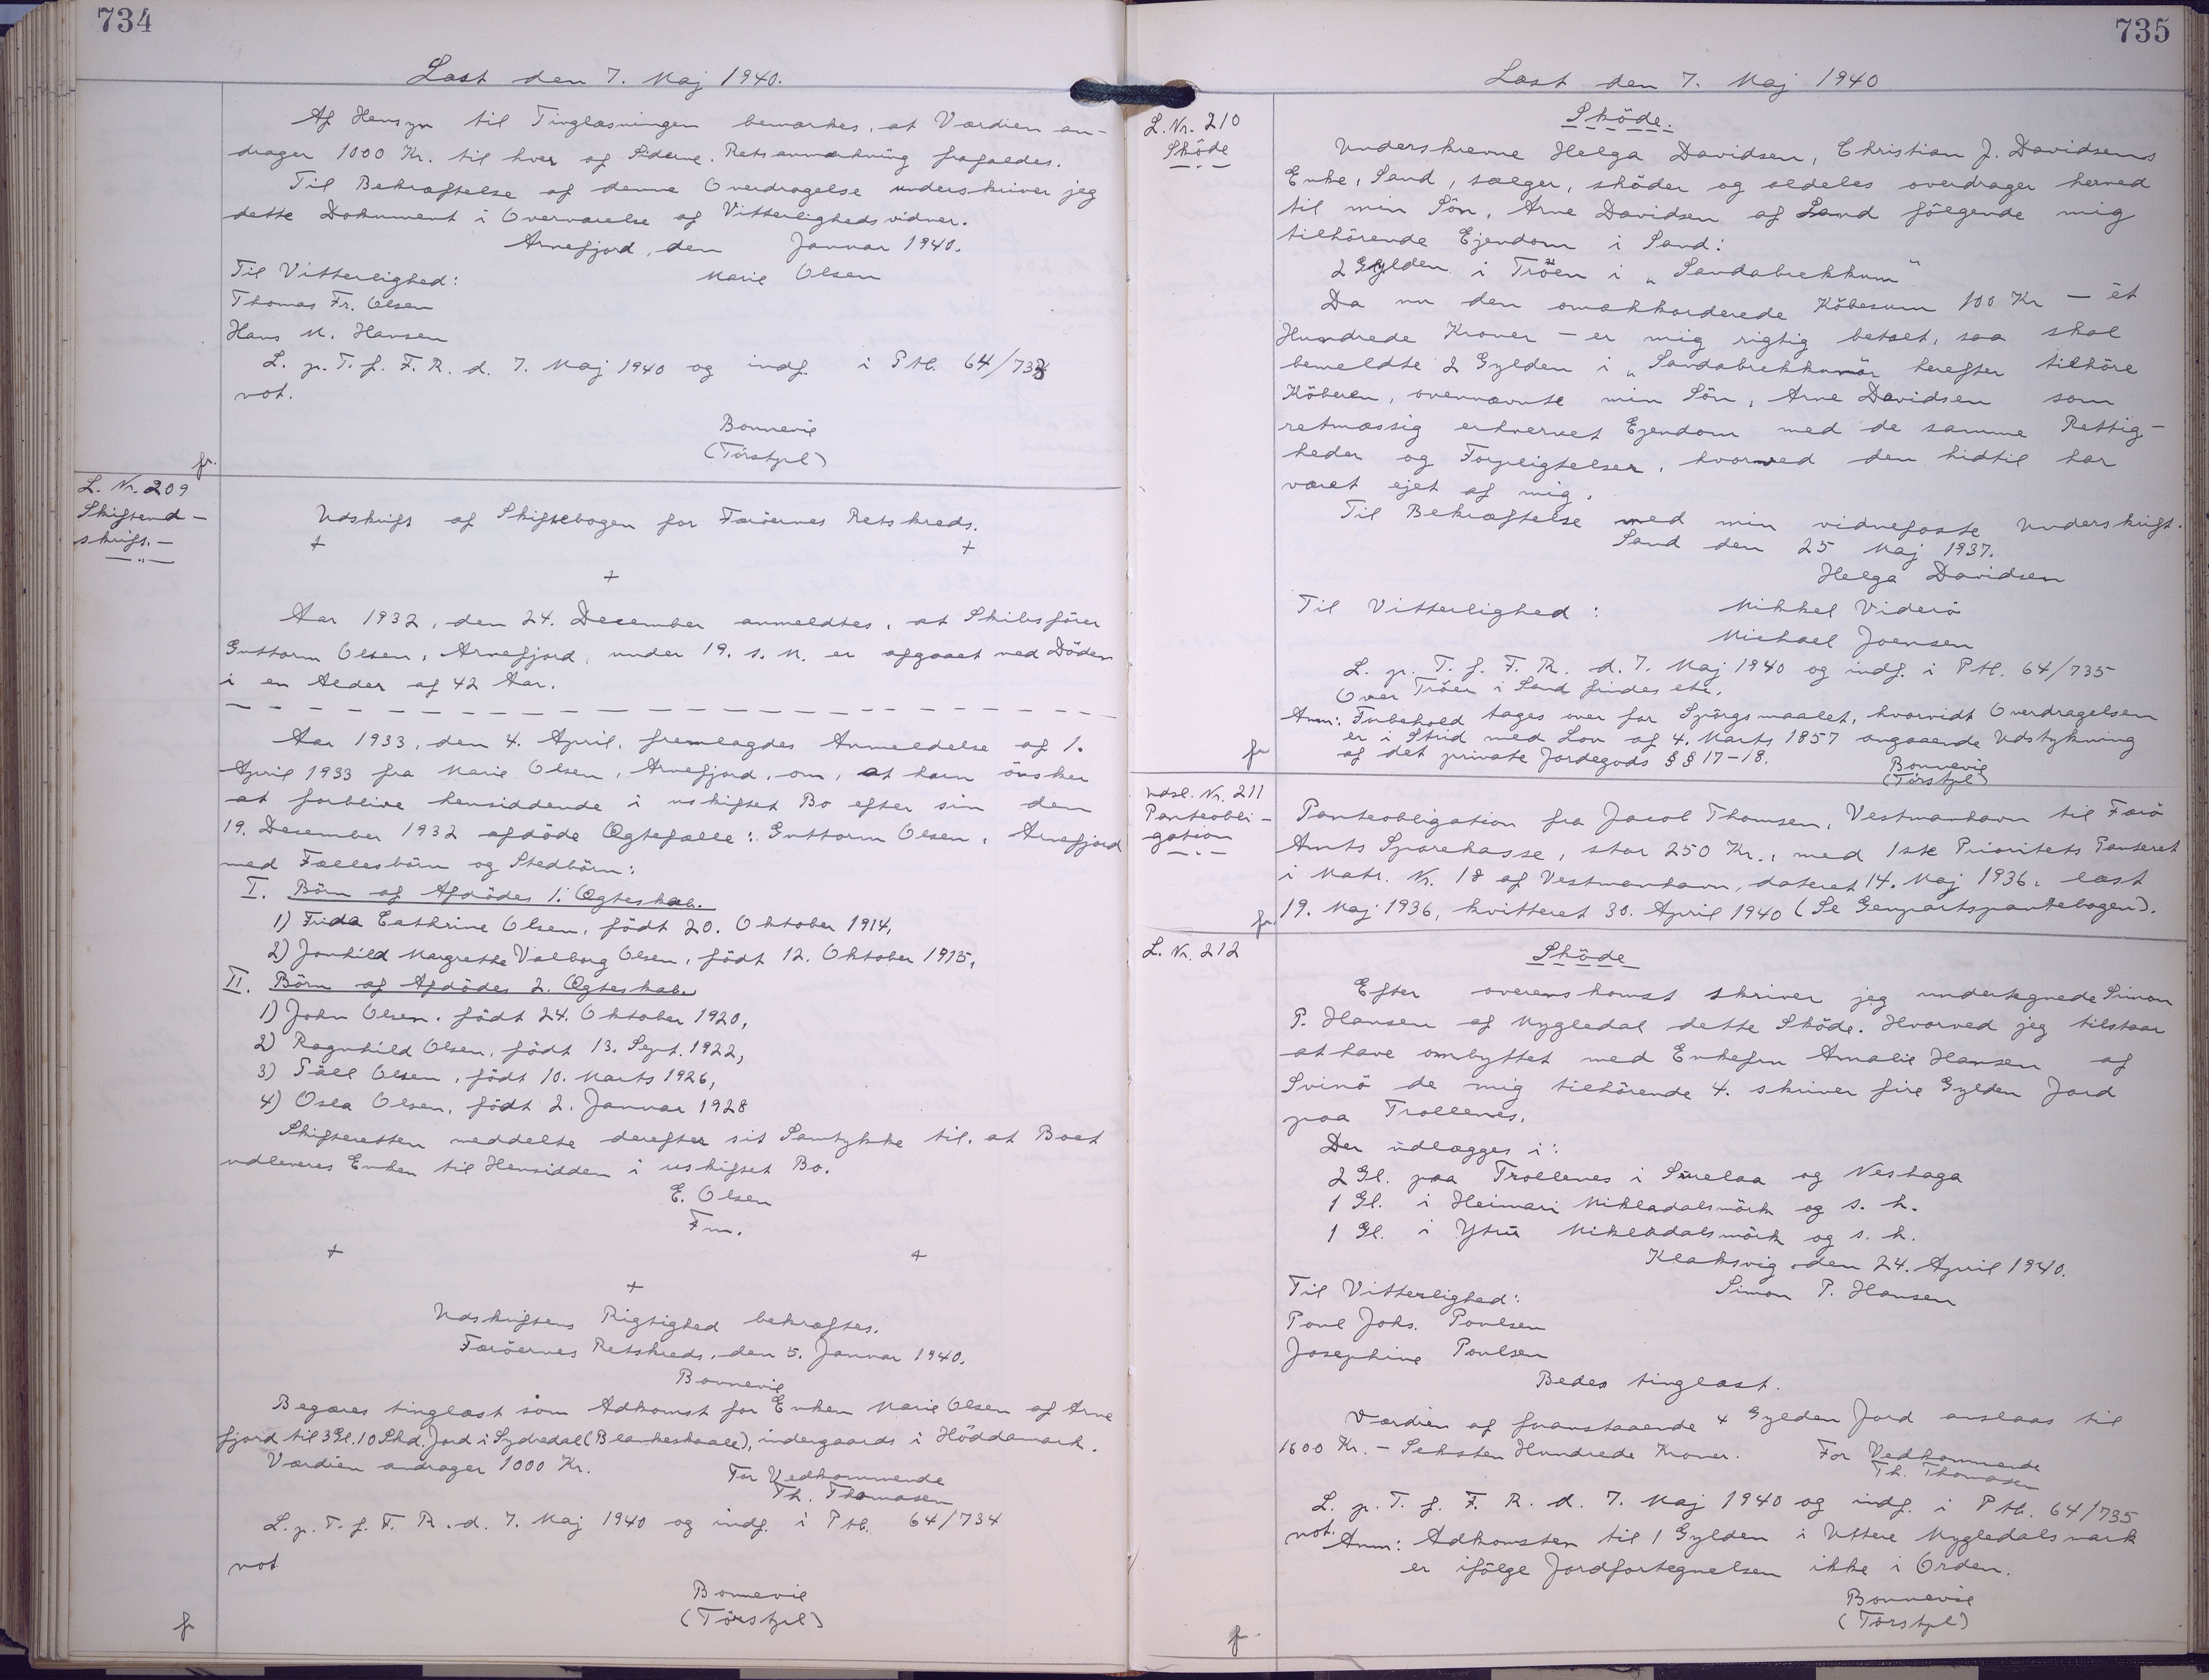 734
Læst den 7. Maj 1940.
Af Hensyn til Tinglæsningen bemærkes, at Værdien an-
drager 1000 Kr. til hver af Siderne. Retsanmærkning frafaldes.
Til Bekræftelse af denne Overdragelse underskriver jeg
dette Dokument i Overværelse af Vitterlighedsvidner.
Arnefjord, den Januar 1940.
Til Vitterlighed: Marie Olsen
Thomas Fr. Olsen
Hans M. Hansen
L. p. T. f. F. R. d. 7. Maj 1940 og indf. i Ptb. 64/733
not.
Bonnevie
(Törstpl)
fr.
L. Nr. 209
Skifteud-
skrift.-
Udskrift af Skiftebogen for Færöernes Retskreds.
+ +
+
Aar 1932, den 24. December anmeldtes, at Skibsförer
Guttorm Olsen, Arnefjord, under 19. s. M. er afgaaet ved Döden
i en Alder af 42 Aar.
Aar 1933, den 4. April, fremlagdes Anmeldelse af 1.
April 1933 fra Marie Olsen, Arnefjord, om, at hun önsker
at forblive hensiddende i uskiftet Bo efter sin den
19. December 1932 afdöde Ægtefælle: Guttorm Olsen, Arnefjord
med Fællesbörn og Stedbörn:
I. Börn af Afdödes 1. Ægteskab.
1) Frida Cathrine Olsen, födt 20. Oktober 1914,
2) Jonhild Margrethe Valborg Olsen, födt 12. Oktober 1915,
II. Börn af Afdödes 2. Ægteskab.
1) John Olsen, födt 24. Oktober 1920,
2) Ragnhild Olsen, födt 13. Sept. 1922,
3) Páll Olsen, födt 10. Marts 1926,
4) Osla Olsen, födt 2. Januar 1928
Skifteretten meddelte derefter sit Samtykke til, at Boet
udleveres Enken til Hensidden i uskiftet Bo.
E. Olsen
Fm.
+ +
+
Udskriftens Rigtighed bekræftes.
Færöernes Retskreds, den 5. Januar 1940.
Bonnevie
Begæres tinglæst som Adkomst for Enken Marie Olsen af Arne
fjord til 3 Gl. 10 Skd. Jord i Sydredal (Blankeskaale), indergaards i Höddamark.
Værdien andrager 1000 Kr. For Vedkommende
Th. Thomasen
L. p. T. f. F. R. d. 7. Maj 1940 og indf. i Ptb. 64/734
not
Bonnevie
(Törstpl)
fr
735
Læst den 7. Maj 1940
L. Nr. 210
Sköde
Sköde.
Underskrevne Helga Davidsen, Christian J. Davidsens
Enke, Sand, sælger, sköder og aldeles overdrager herved
til min Sön, Arne Davidsen af Sand fölgende mig
tilhörende Ejendom i Sand:
2 Gylden i Tröen i „Sandabrekkum"
Da nu den omakkorderede Köbesum 100 Kr — ét
Hundrede Kroner — er mig rigtig betalt, saa skal
bemeldte 2 Gylden i „Sandabrekkum" herefter tilhöre
Köberen, ovennævnte min Sön, Arne Davidsen som
retmæssig erhvervet Ejendom med de samme Rettig-
heder og Forpligtelser, hvormed den hidtil har
været ejet af mig.
Til Bekræftelse med min vidnefaste Underskrift.
Sand den 25 Maj 1937.
Helga Davidsen
Til Vitterlighed: Mikkel Viderö
Michael Joensen
L. p. T. f. F. R. d. 7. Maj 1940 og indf. i Ptb. 64/735
Over Tröer i Sand findes etc.
Anm: Forbehold tages over for Spörgsmaalet, hvorvidt Overdragelsen
er i Strid med Lov af 4. Marts 1857 angaaende Udstykning
af det private Jordegods §§ 17-18.
Bonnevie
(Törstpl)
fr
Udsl. Nr. 211
Panteobli-
gation
Panteobligation fra Jacob Thomsen, Vestmanhavn til Færö
Amts Sparekasse, stor 250 Kr., med 1ste Prioritets Panteret
i Matr. Nr. 18 af Vestmanhavn, dateret 14. Maj 1936, læst
19. Maj 1936, kvitteret 30. April 1940 (Se Genpartspantebogen).
fr.
L. Nr. 212
Sköde
Efter overenskomst skriver jeg undertegnede Simon
P. Hansen af Mygledal dette Sköde. Hvorved jeg tilstaar
at have ombyttet med Enkefru Amalie Hansen af
Svinö de mig tilhörende 4. skriver fire Gylden Jord
paa Trollenes.
Der udlægges i:
2 Gl. paa Trollenes i Surelaa og Neshaga
1 Gl. i Heimari Mikladalsmörk og s. h.
1 Gl. i Ytri Mikladalsmörk og s. h.
Klaksvig den 24. April 1940.
Til Vitterlighed: Simon P. Hansen
Poul Johs. Poulsen
Josephine Poulsen
Bedes tinglæst.
Værdien af foranstaaende 4 Gylden Jord anslaas til
1600 Kr. - Seksten Hundrede Kroner. For Vedkommende
Th. Thomasen
L. p. T. f. F. R. d. 7. Maj 1940 og indf. i Ptb. 64/735
not. Anm: Adkomsten til 1 Gylden i Uttere Mygledalsmark
er ifölge Jordfortegnelsen ikke i Orden.
Bonnevie
(Törstpl)
fr